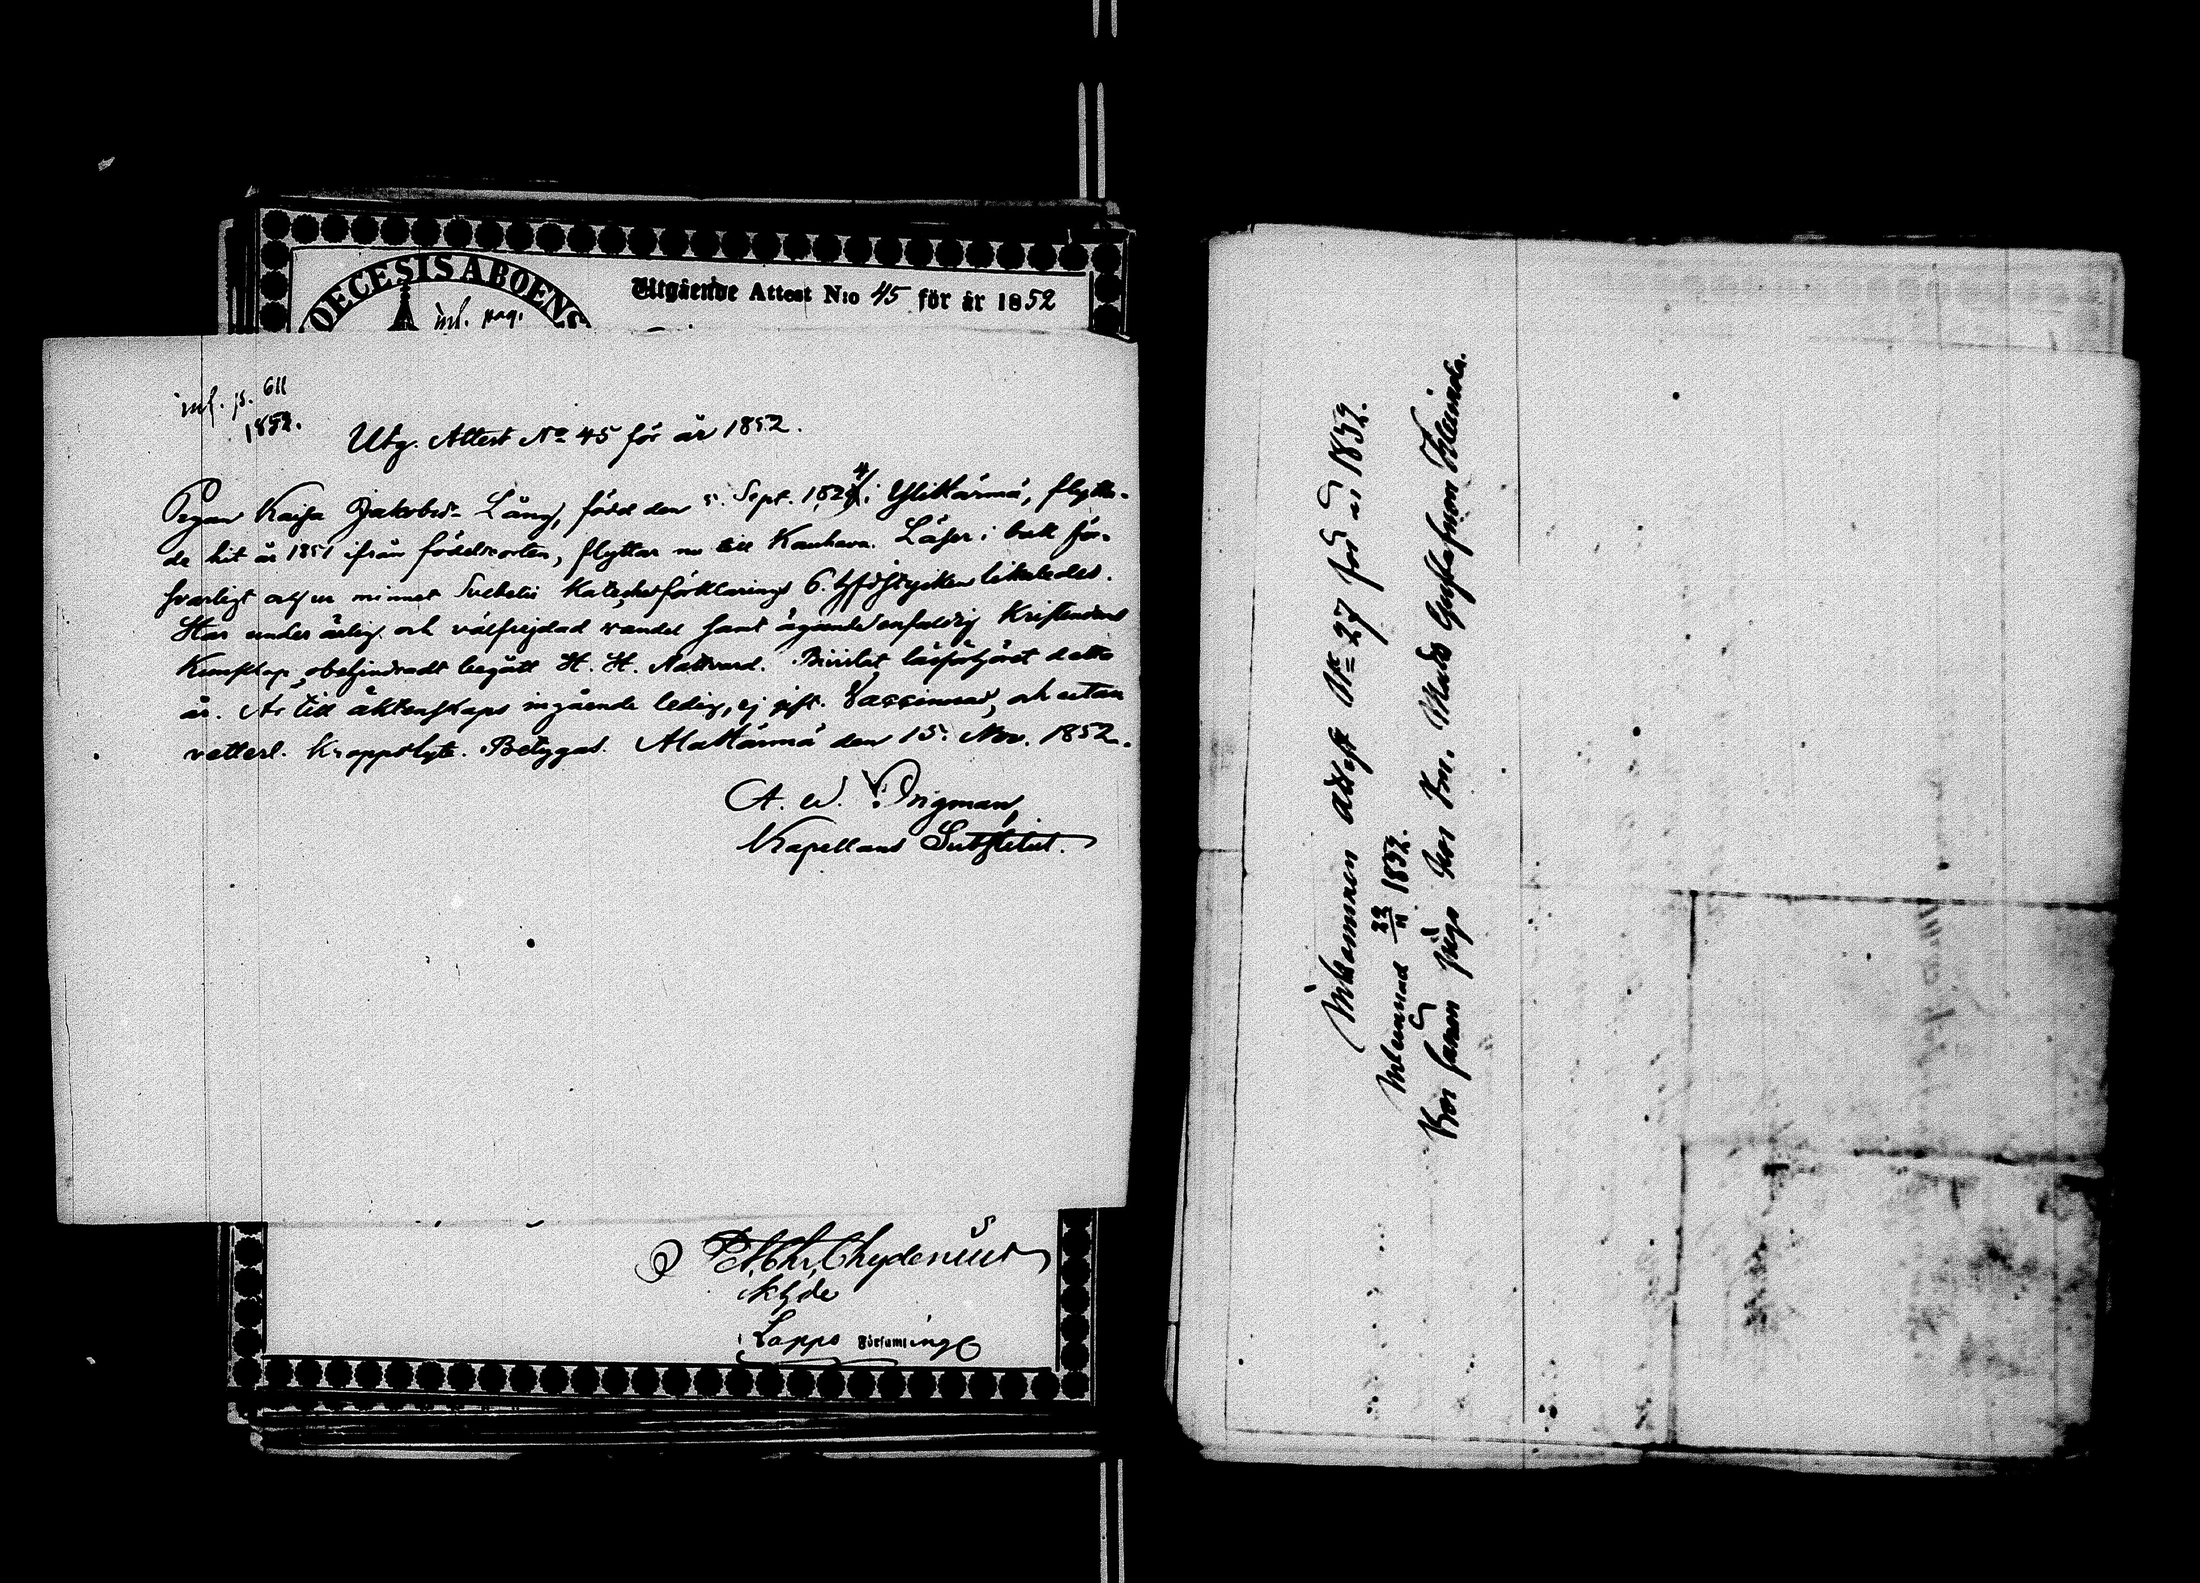 OECESIS ABOENS
inf. pag.
Utgående Attest N:o 45 för år 1852
inf. p. 611
1852.
Utg. Attest No 45 för år 1852.
Pigan Kaisa Jakobsd. Lång, född den 5. Sept. 1824 i Ylikärmä, flytta-
de hit år 1851 ifrån födelseorten, flyttar nu till Kauhava. Läser i bok för-
svarligt och ur minnet Svebelii Katechesförklarings 6. hufvudstycken likaledes.
Har under ärlig och välfrejdad vandel samt ägande enfaldig Kristendoms
Kunskap, obehindradt begått H. H. Nattvard. Bivistat läsförhöret detta
år. Är till äktenskaps ingående ledig, ej gift. Vaccinerad, och utan
vetterl. Kroppslyte. Betygas. Alakärmä den 15. Nov. 1852.
A. W.
Kapellans Substitut.
Chydenius
Lappo Församling
Inkommen attest No 27 för år 1852.
Inlemnad 22/11 1852.
Kom som piga hos Bm. Mats Gustafsson